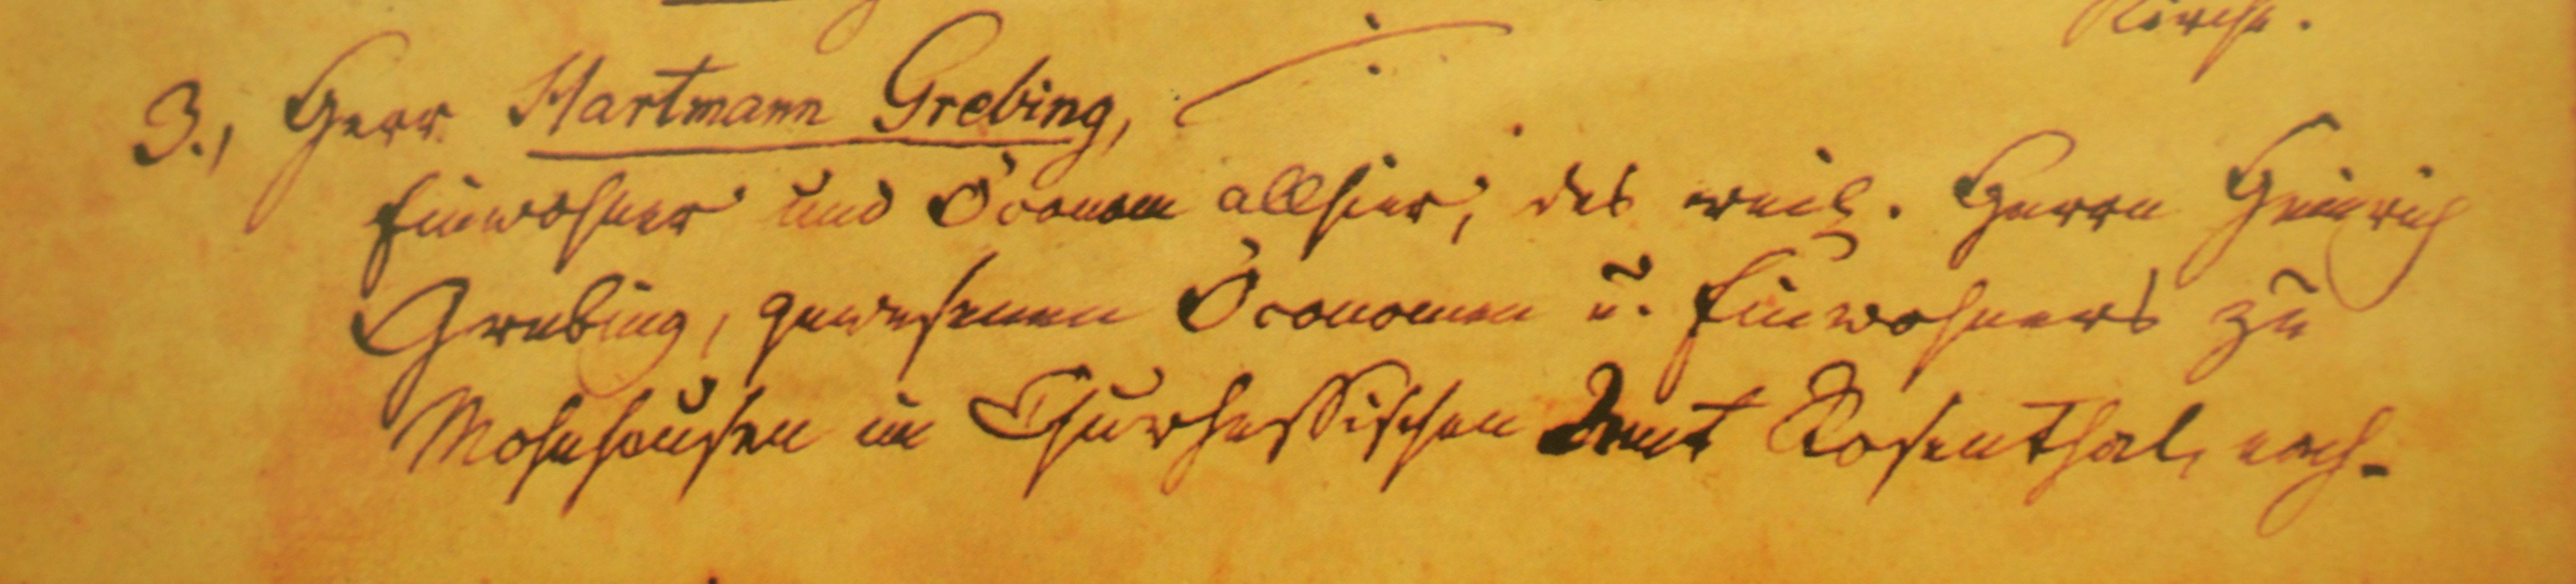 Kirche.
3., Herr Hartmann Grebing,
Einwohner und Öconom allhier, des weil. Herrn Heinrich
Grebing, gewesenen Öconomen u. Einwohners zu
Mohnhausen im Churhessischen Amt Rosenthal, nach-